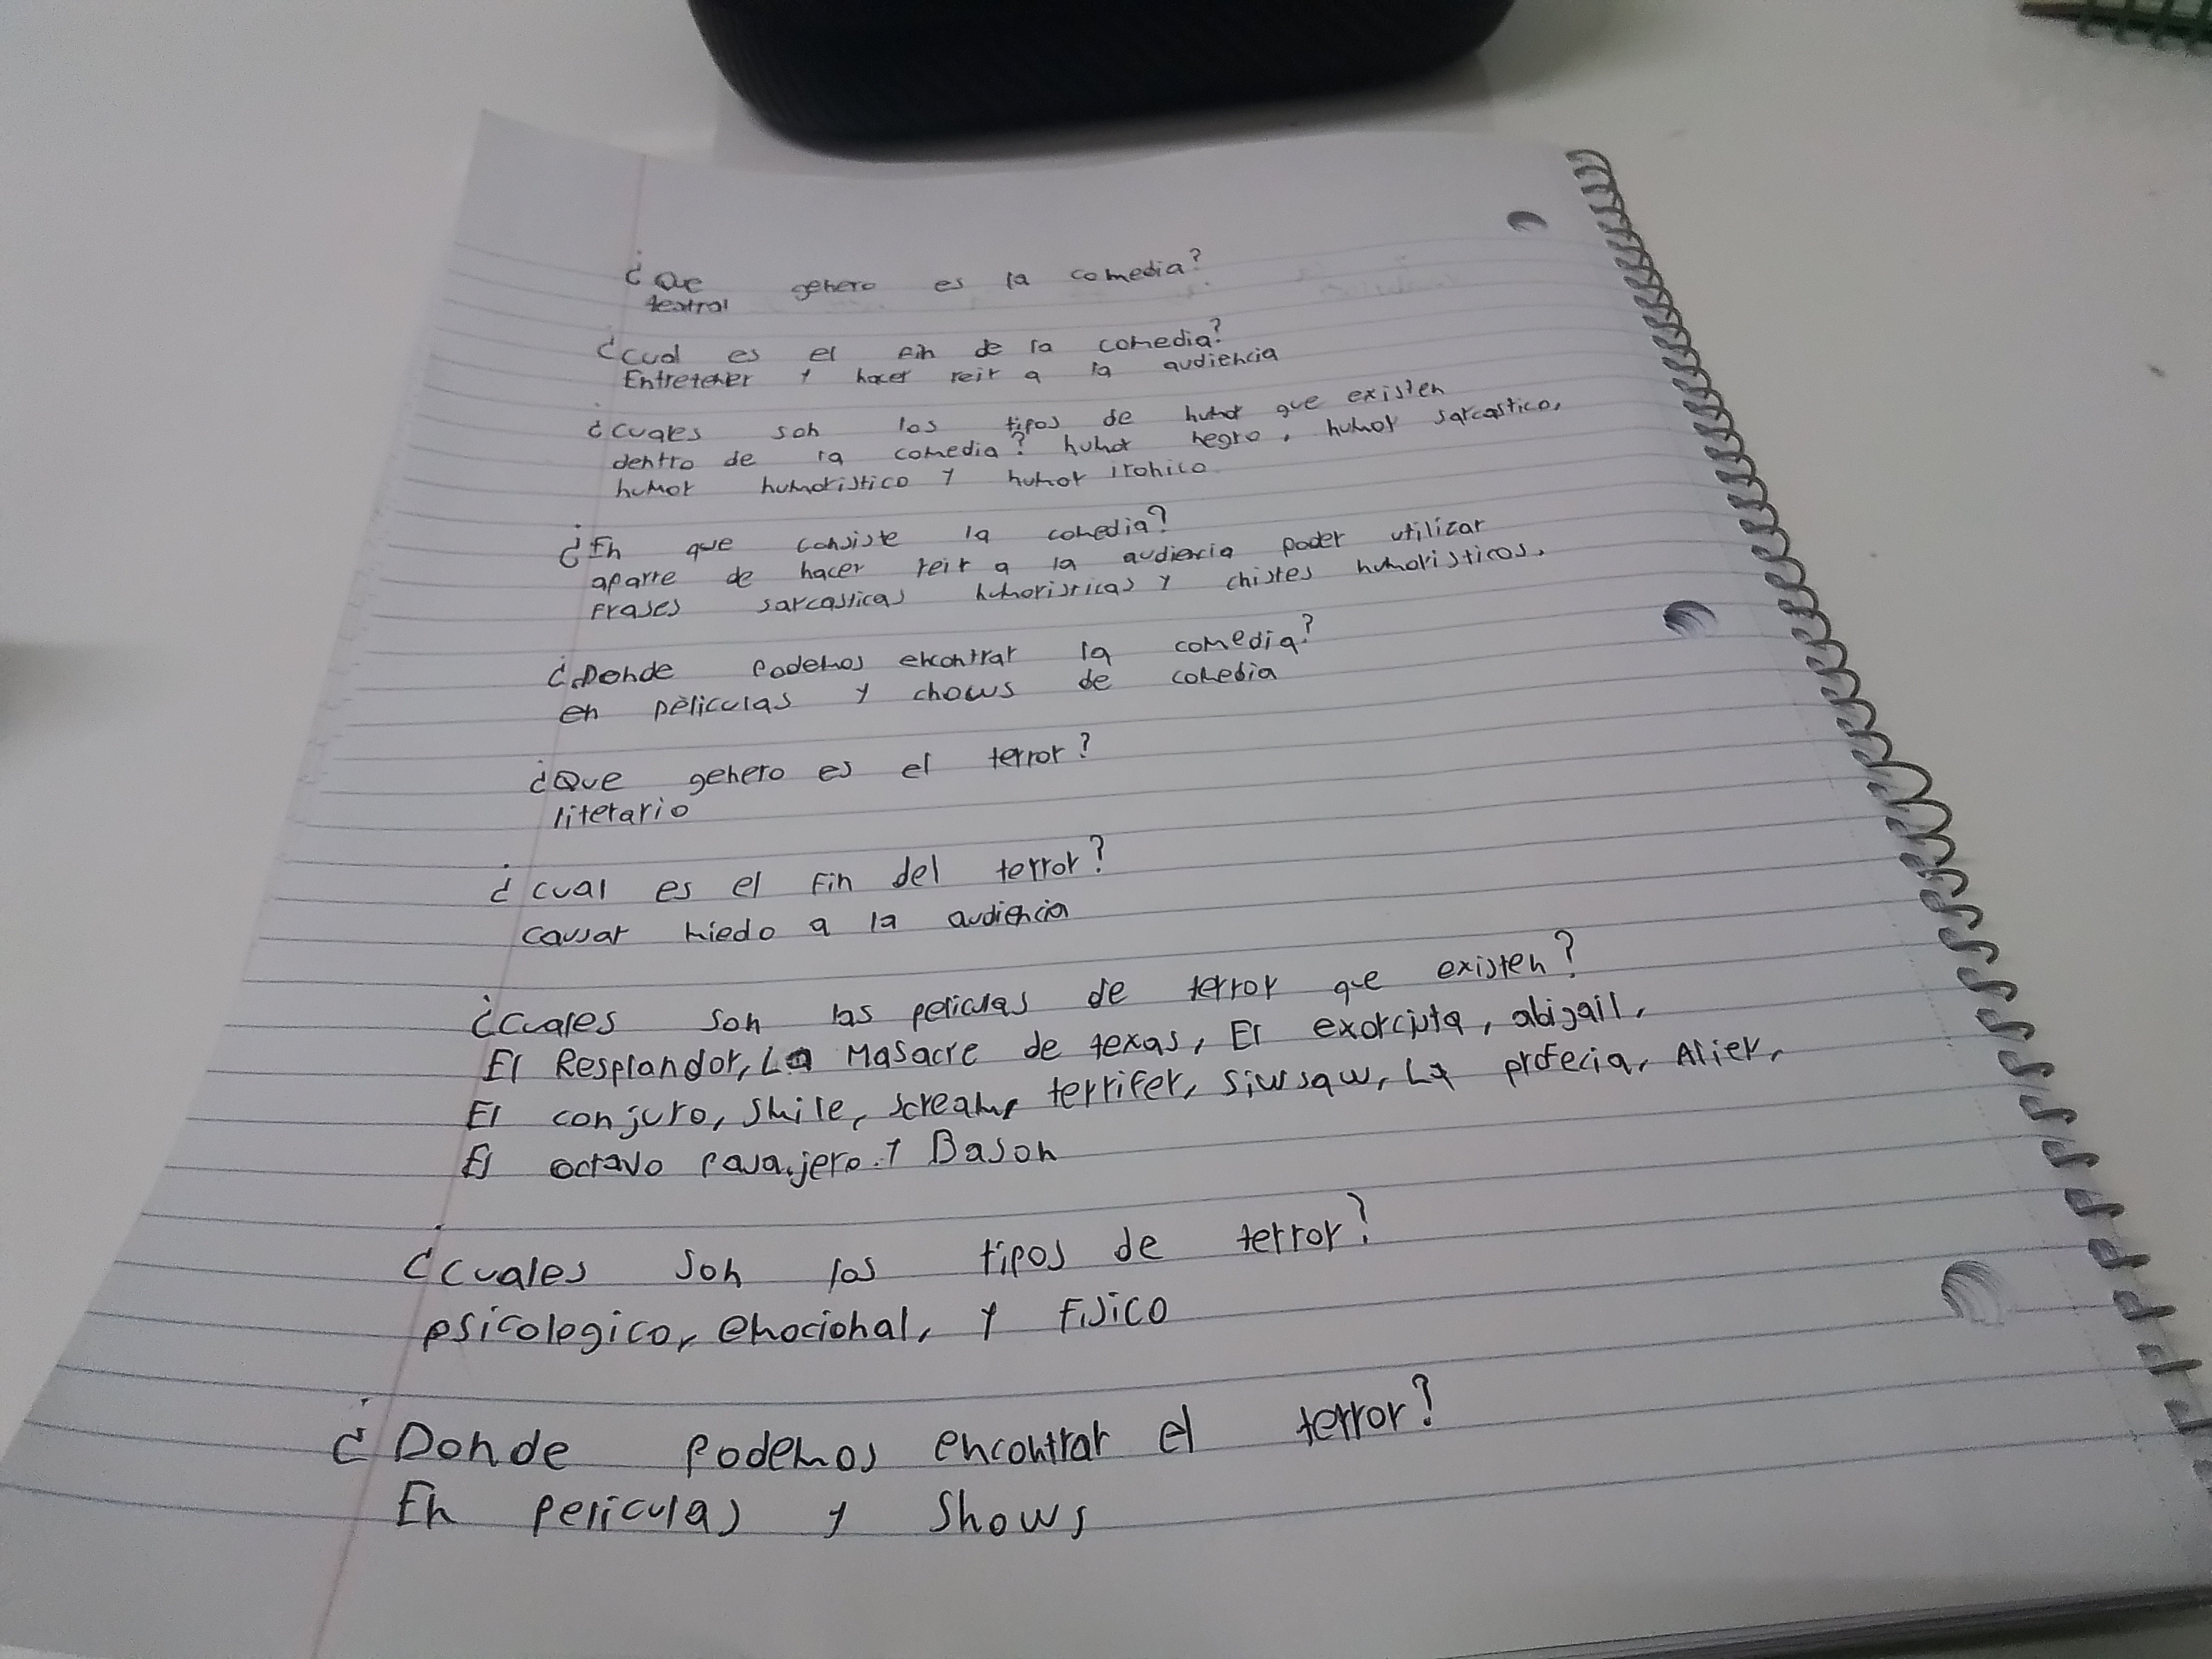 ¿Que genero es la comedia?
teatral
¿cual es el fin de la comedia?
Entretener y hacer reir a la audiencia
¿cuales son los tipos de humor que existen
dentro de la comedia? humor negro, humor sarcastico,
humor humoristico y humor ironico
¿En que consiste la comedia?
aparte de hacer reir a la audiencia poder utilizar
Frases sarcasticas humoristicas y chistes humoristicos.
¿Donde podemos encontrar la comedia?
en peliculas y chows de comedia
¿Que genero es el terror?
literario
¿cual es el fin del terror?
causar miedo a la audiencia
¿cuales son las peliculas de terror que existen?
El Resplandor, La Masacre de texas, El exorcista, abigail,
El conjuro, smile, scream, terrifer, siwsaw, La profecia, Alien,
El octavo pasajero. y Bason
¿cuales son los tipos de terror?
psicologico, emocional, y Fisico
¿Donde podemos encontrar el terror?
En peliculas y shows